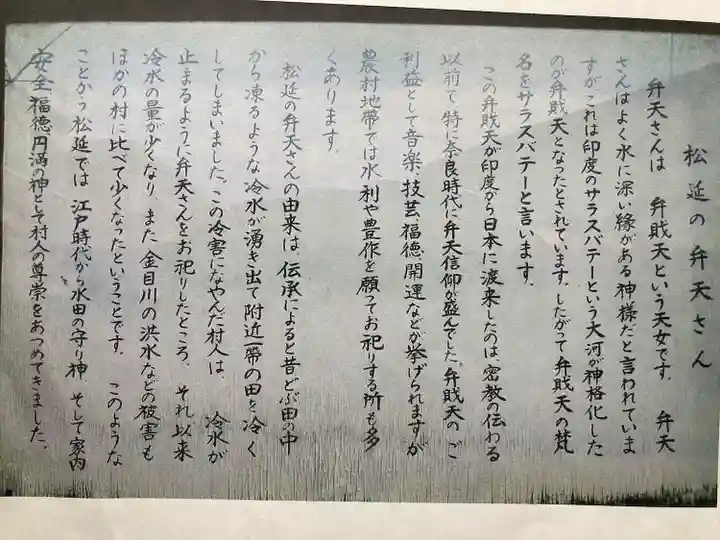 松延の弁天さん
弁天さんは 弁戝天という天女です. 弁天
さんはよく水に深い縁がある神様だと言われていま
すが、これは印度のサラスバテーという大河が神格化した
のが弁戝天となったとされています.したがって弁戝天の梵
名をサラスバテーと言います.
この弁戝天が印度から日本に渡来したのは、密教の伝わる
以前で 特に奈良時代に弁天信仰が盛んでした。弁戝天の ご
利益として音楽、技芸、福徳、開運などが挙げられますが
農村地帯では水利や豊作を願ってお祀りする所も多
くあります.
松延の弁天さんの由来は、伝承によると昔どぶ田の中
から凍るような冷水が湧き出て附近一帯の田を冷く
してしまいました。この冷害になやんだ村人は、 冷水が
止まるように弁天さんをお祀りしたところ、 それ以来
冷水の量が少くなり、また金目川の洪水などの被害も
ほかの村に比べて少くなったということです. このような
ことから松延では 江戸時代から水田の守り神、そして家内
安全、福徳、円満の神として村人の尊崇をあつめてきました。